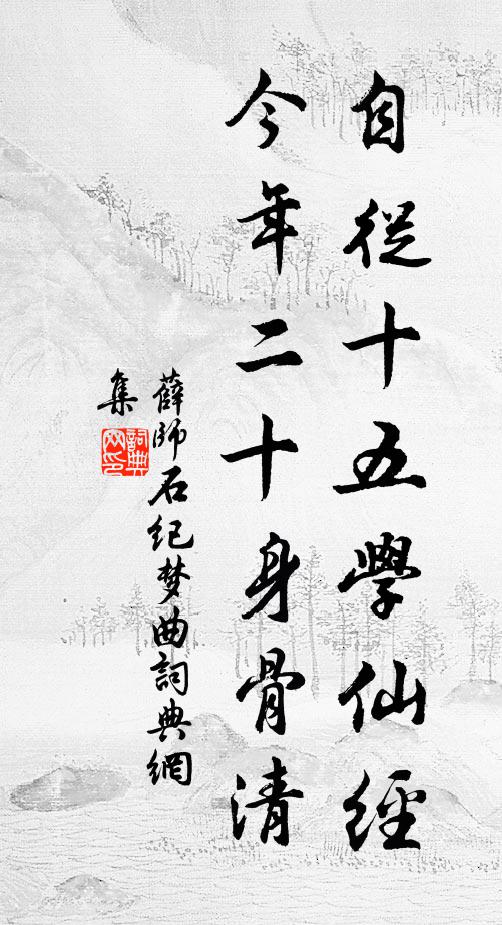 自從十五學仙經
今年二十身骨清
薛師石纪梦曲詞典網
集
詞典
网印